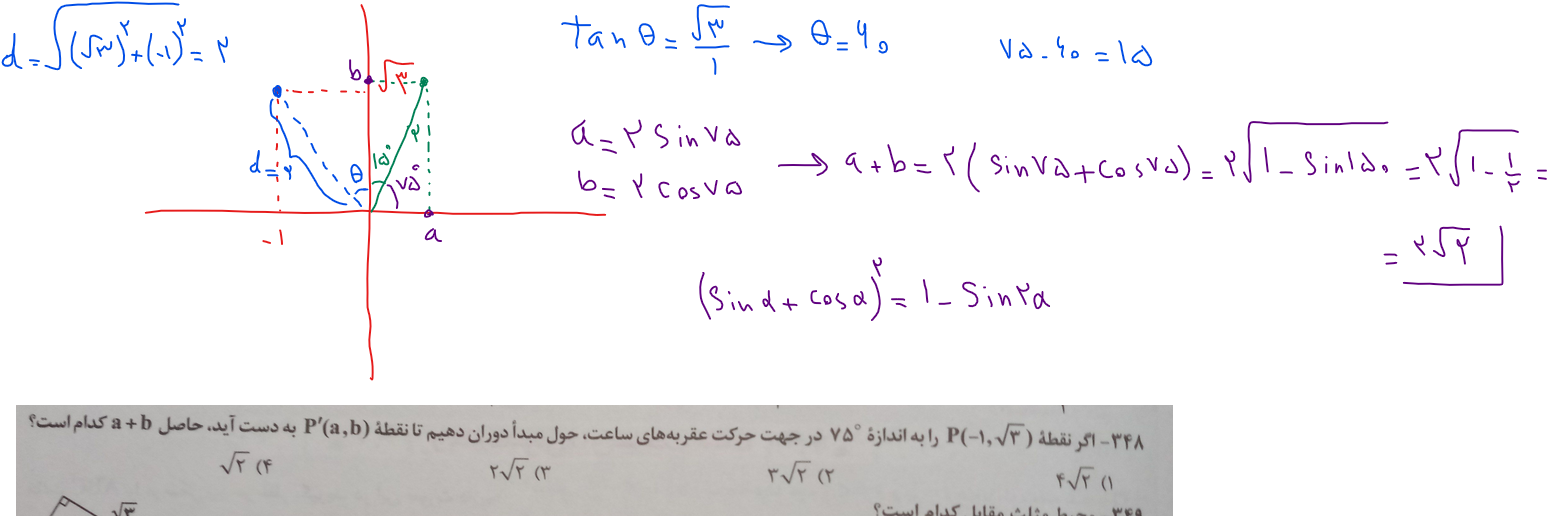 d = √((√۳)^۲ + (-۱)^۲) = ۲
tan θ = √۳/۱ → θ = ۶۰
۷۵ - ۶۰ = ۱۵
b
√۳
d = ۲
θ
۱۵°
۲
۷۵°
-۱
a
a = ۲ sin ۷۵
b = ۲ cos ۷۵
→ a + b = ۲ (sin ۷۵ + cos ۷۵) = ۲√(۱ - sin ۱۵۰) = ۲√(۱ - ۱/۲) =
= ۲√۲
(sin α + cos α)^۲ = ۱ - sin ۲α
۳۴۸- اگر نقطهٔ P(-۱,√۳) را به اندازهٔ ۷۵° در جهت حرکت عقربه‌های ساعت، حول مبدأ دوران دهیم تا نقطهٔ P′(a,b) به دست آید، حاصل a+b کدام است؟
۱) ۴√۲ ۲) ۳√۲ ۳) ۲√۲ ۴) √۲
√۳